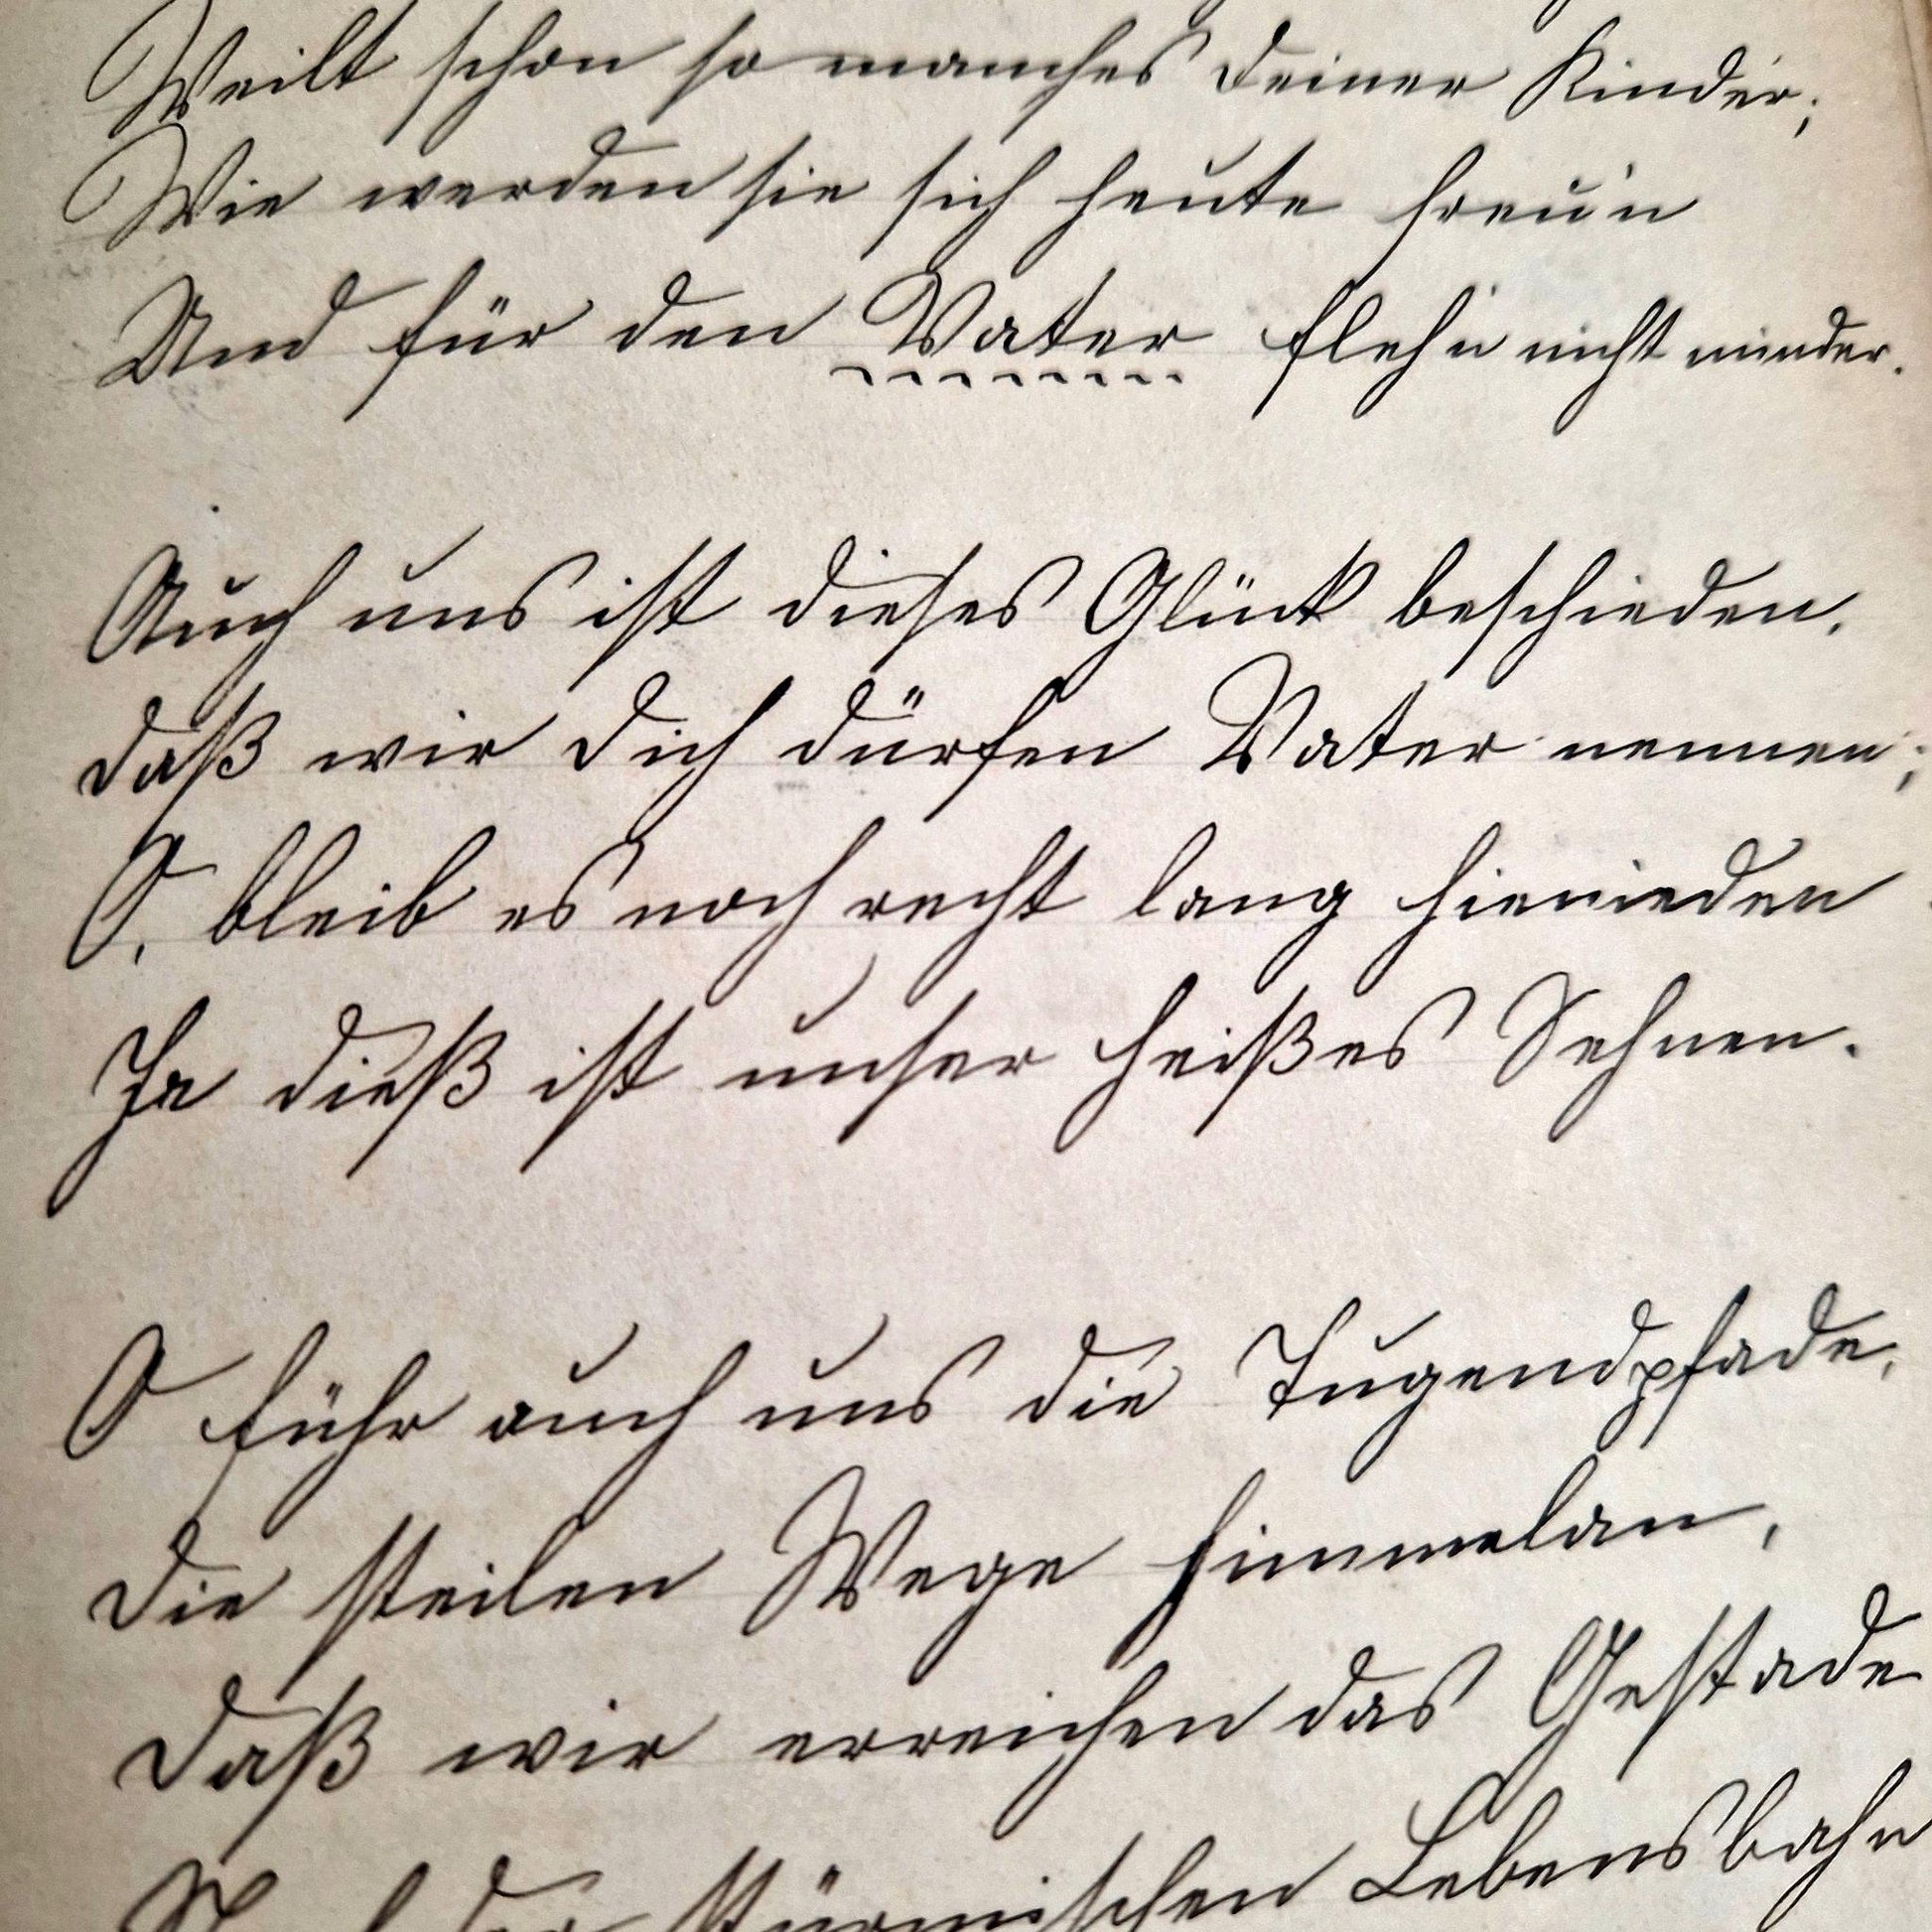 Weilt schon so manches deiner Kinder;
Wie werden sie sich heute freu'n
Und für den Vater fleh'n nicht minder.
Auch uns ist dieses Glück beschieden,
daß wir dich dürfen Vater nennen;
O, bleib es noch recht lang hienieden
Ja dieß ist unser heißes Sehnen.
O führ auch uns die Tugendpfade,
die steilen Wege himmelan,
daß wir erreichen das Gestade
Nach der stürmischen Lebensbahn